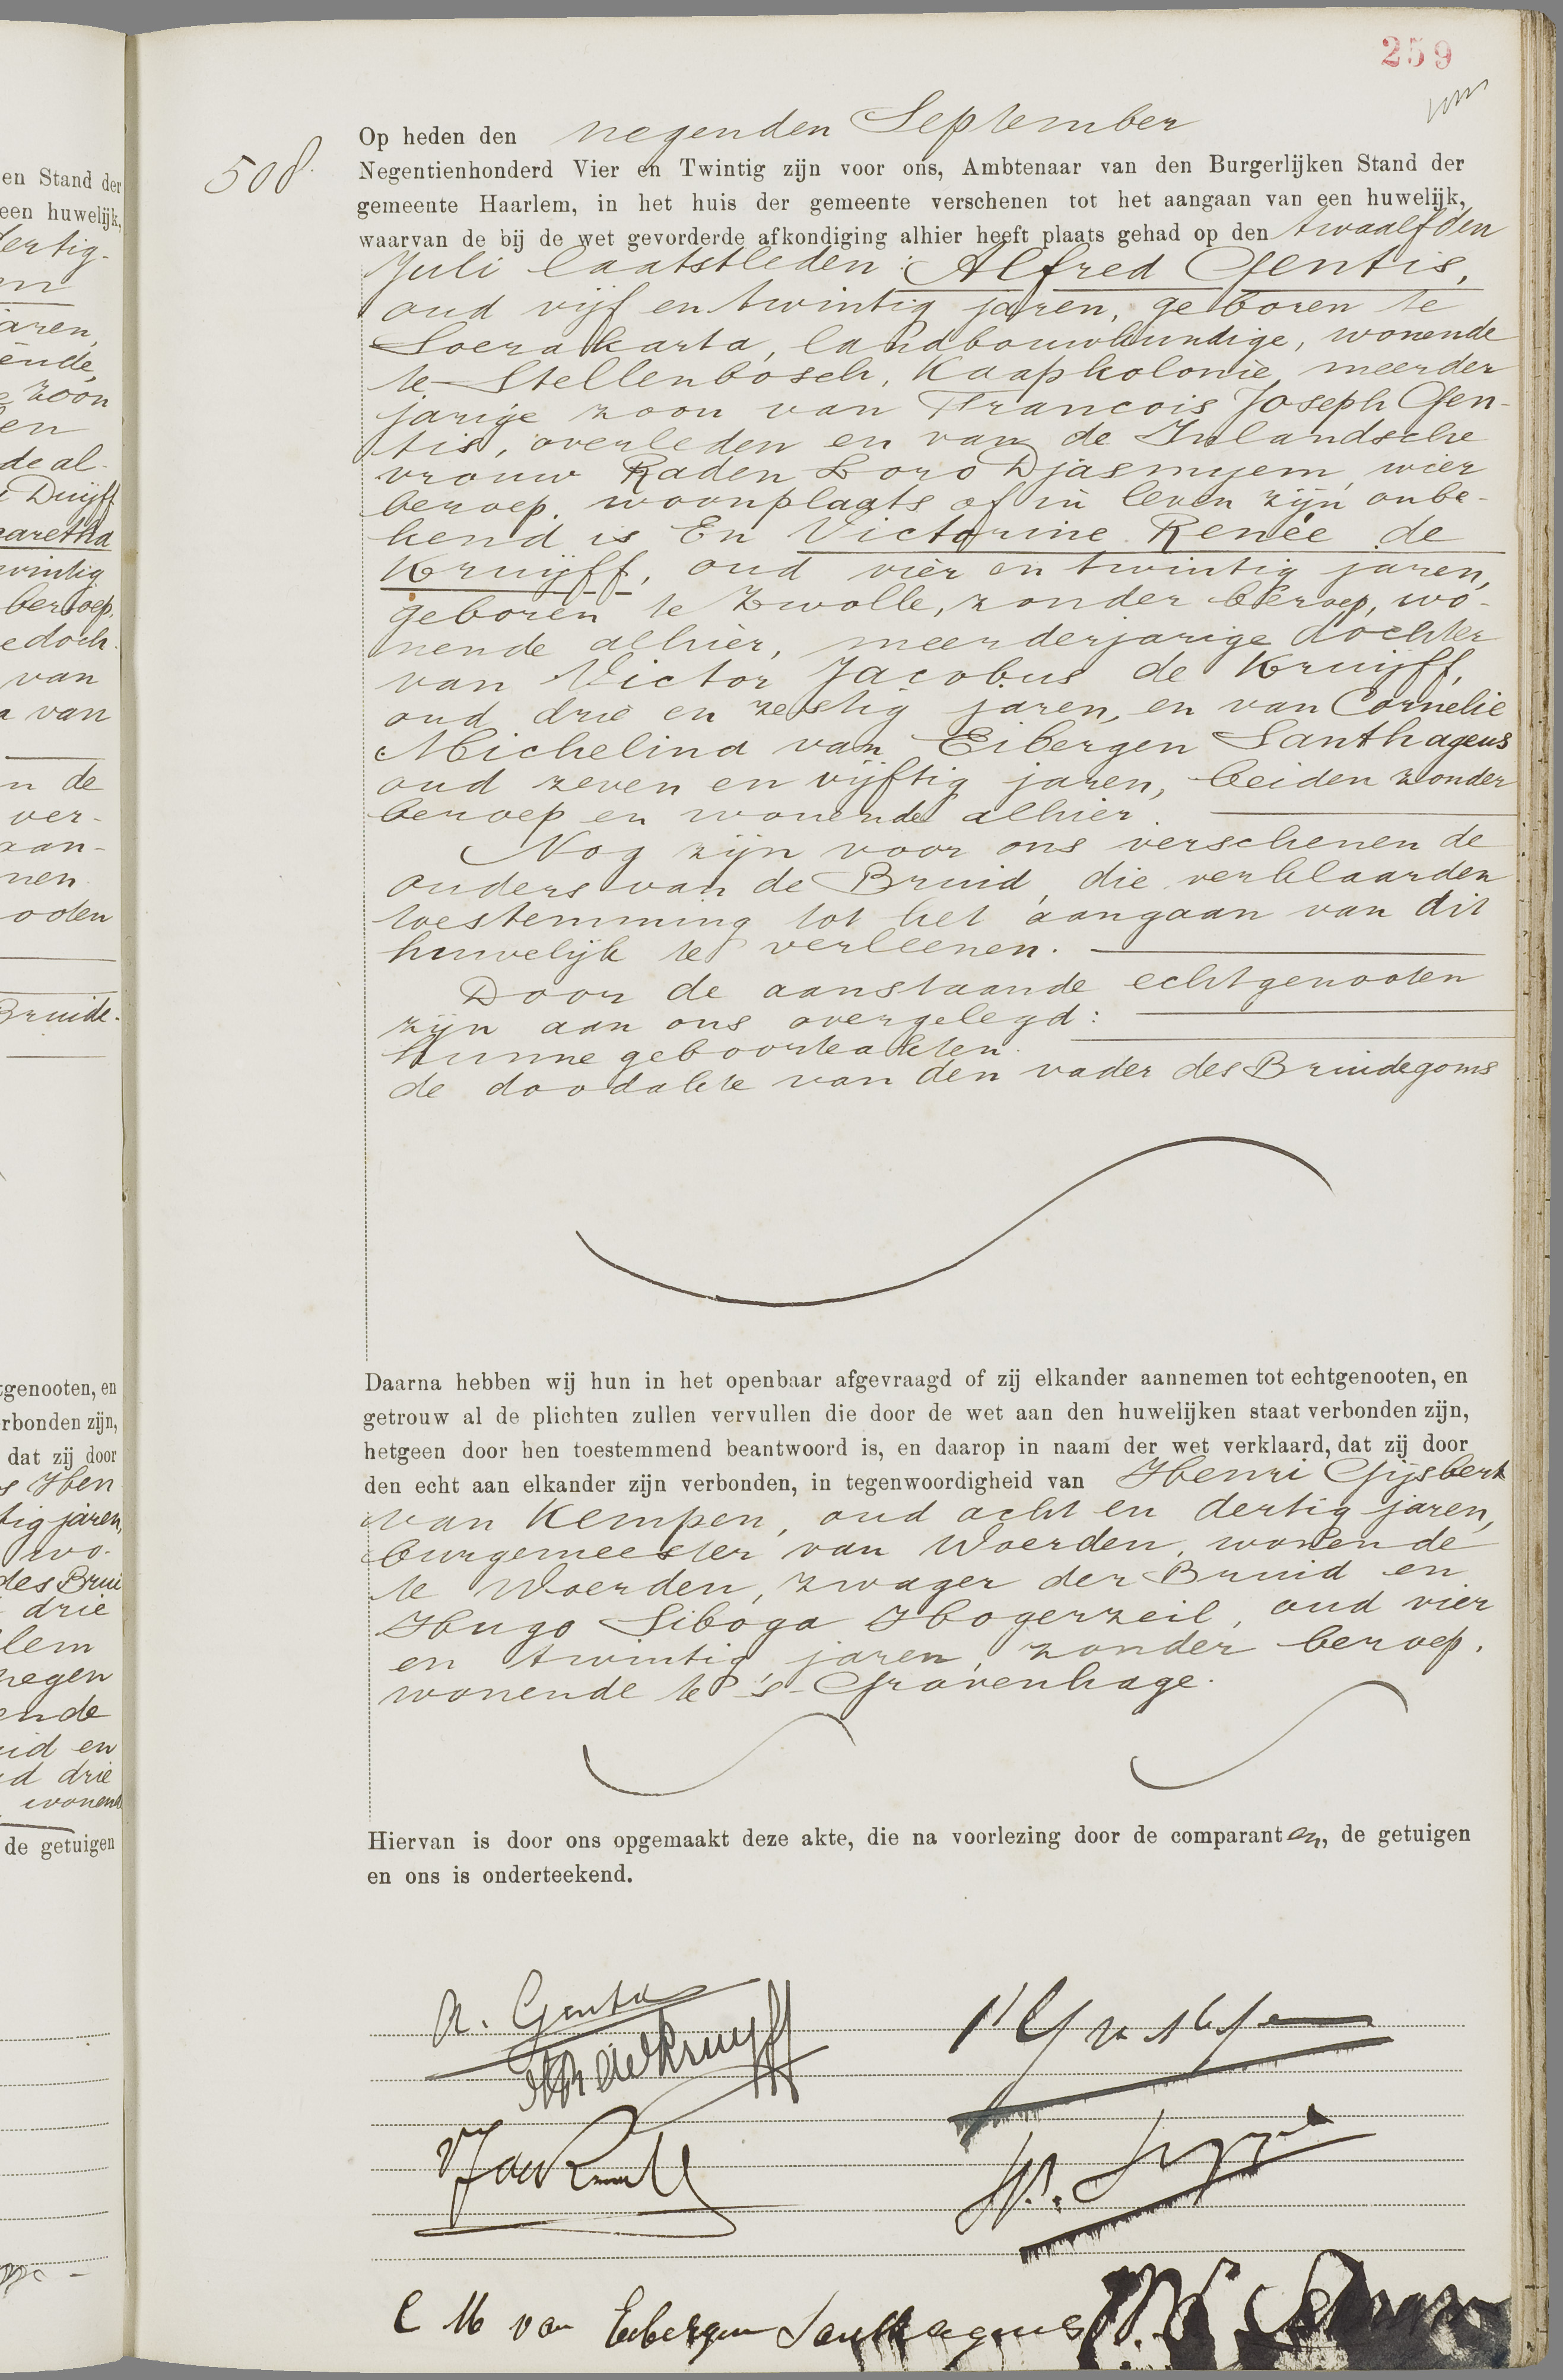 259
508.
Op heden den negenden September
Negentienhonderd Vier en Twintig zijn voor ons, Ambtenaar van den Burgerlijken Stand der
gemeente Haarlem, in het huis der gemeente verschenen tot het aangaan van een huwelijk,
waarvan de bij de wet gevorderde afkondiging alhier heeft plaats gehad op den twaalfden
Juli laatstleden: Alfred Gentis,
oud vijf en twintig jaren, geboren te
Soerakarta, landbouwkundige, wonende
te Stellenbosch, Kaapkolonie, meerder
jarige zoon van Francois Joseph Gen-
tis, overleden en van de Inlandsche
vrouw Raden Loro Djasmyem, wier
beroep, woonplaats of in leven zijn onbe-
kend is En Victorine Renée de
Kruijff, oud vier en twintig jaren,
geboren te Zwolle, zonder beroep, wo-
nende alhier, meerderjarige dochter
van Victor Jacobus de Kruijff,
oud drie en zestig jaren, en van Cornelie
Michelina van Eibergen Santhagens
oud zeven en vijftig jaren, beiden zonder
beroep en wonende alhier.
Nog zijn voor ons verschenen de
ouders van de Bruid, die verklaarden
toestemming tot het aangaan van dit
huwelijk te verleenen.
Door de aanstaande echtgenooten
zijn aan ons overgelegd:
hunne geboorteakten.
de doodakte van den vader des Bruidegoms
Daarna hebben wij hun in het openbaar afgevraagd of zij elkander aannemen tot echtgenooten, en
getrouw al de plichten zullen vervullen die door de wet aan den huwelijken staat verbonden zijn,
hetgeen door hen toestemmend beantwoord is, en daarop in naam der wet verklaard, dat zij door
den echt aan elkander zijn verbonden, in tegenwoordigheid van Henri Gijsbert
van Kempen, oud acht en dertig jaren,
burgemeester van Woerden, wonende
te Woerden, zwager der Bruid en
Hugo Siboga Hogerzeil, oud vier
en twintig jaren, zonder beroep,
wonende te 's-Gravenhage.
Hiervan is door ons opgemaakt deze akte, die na voorlezing door de comparanten, de getuigen
en ons is onderteekend.
A. Gentis
VR de Kruijff
VJ de Kruijff
C M van Eibergen Santhagens